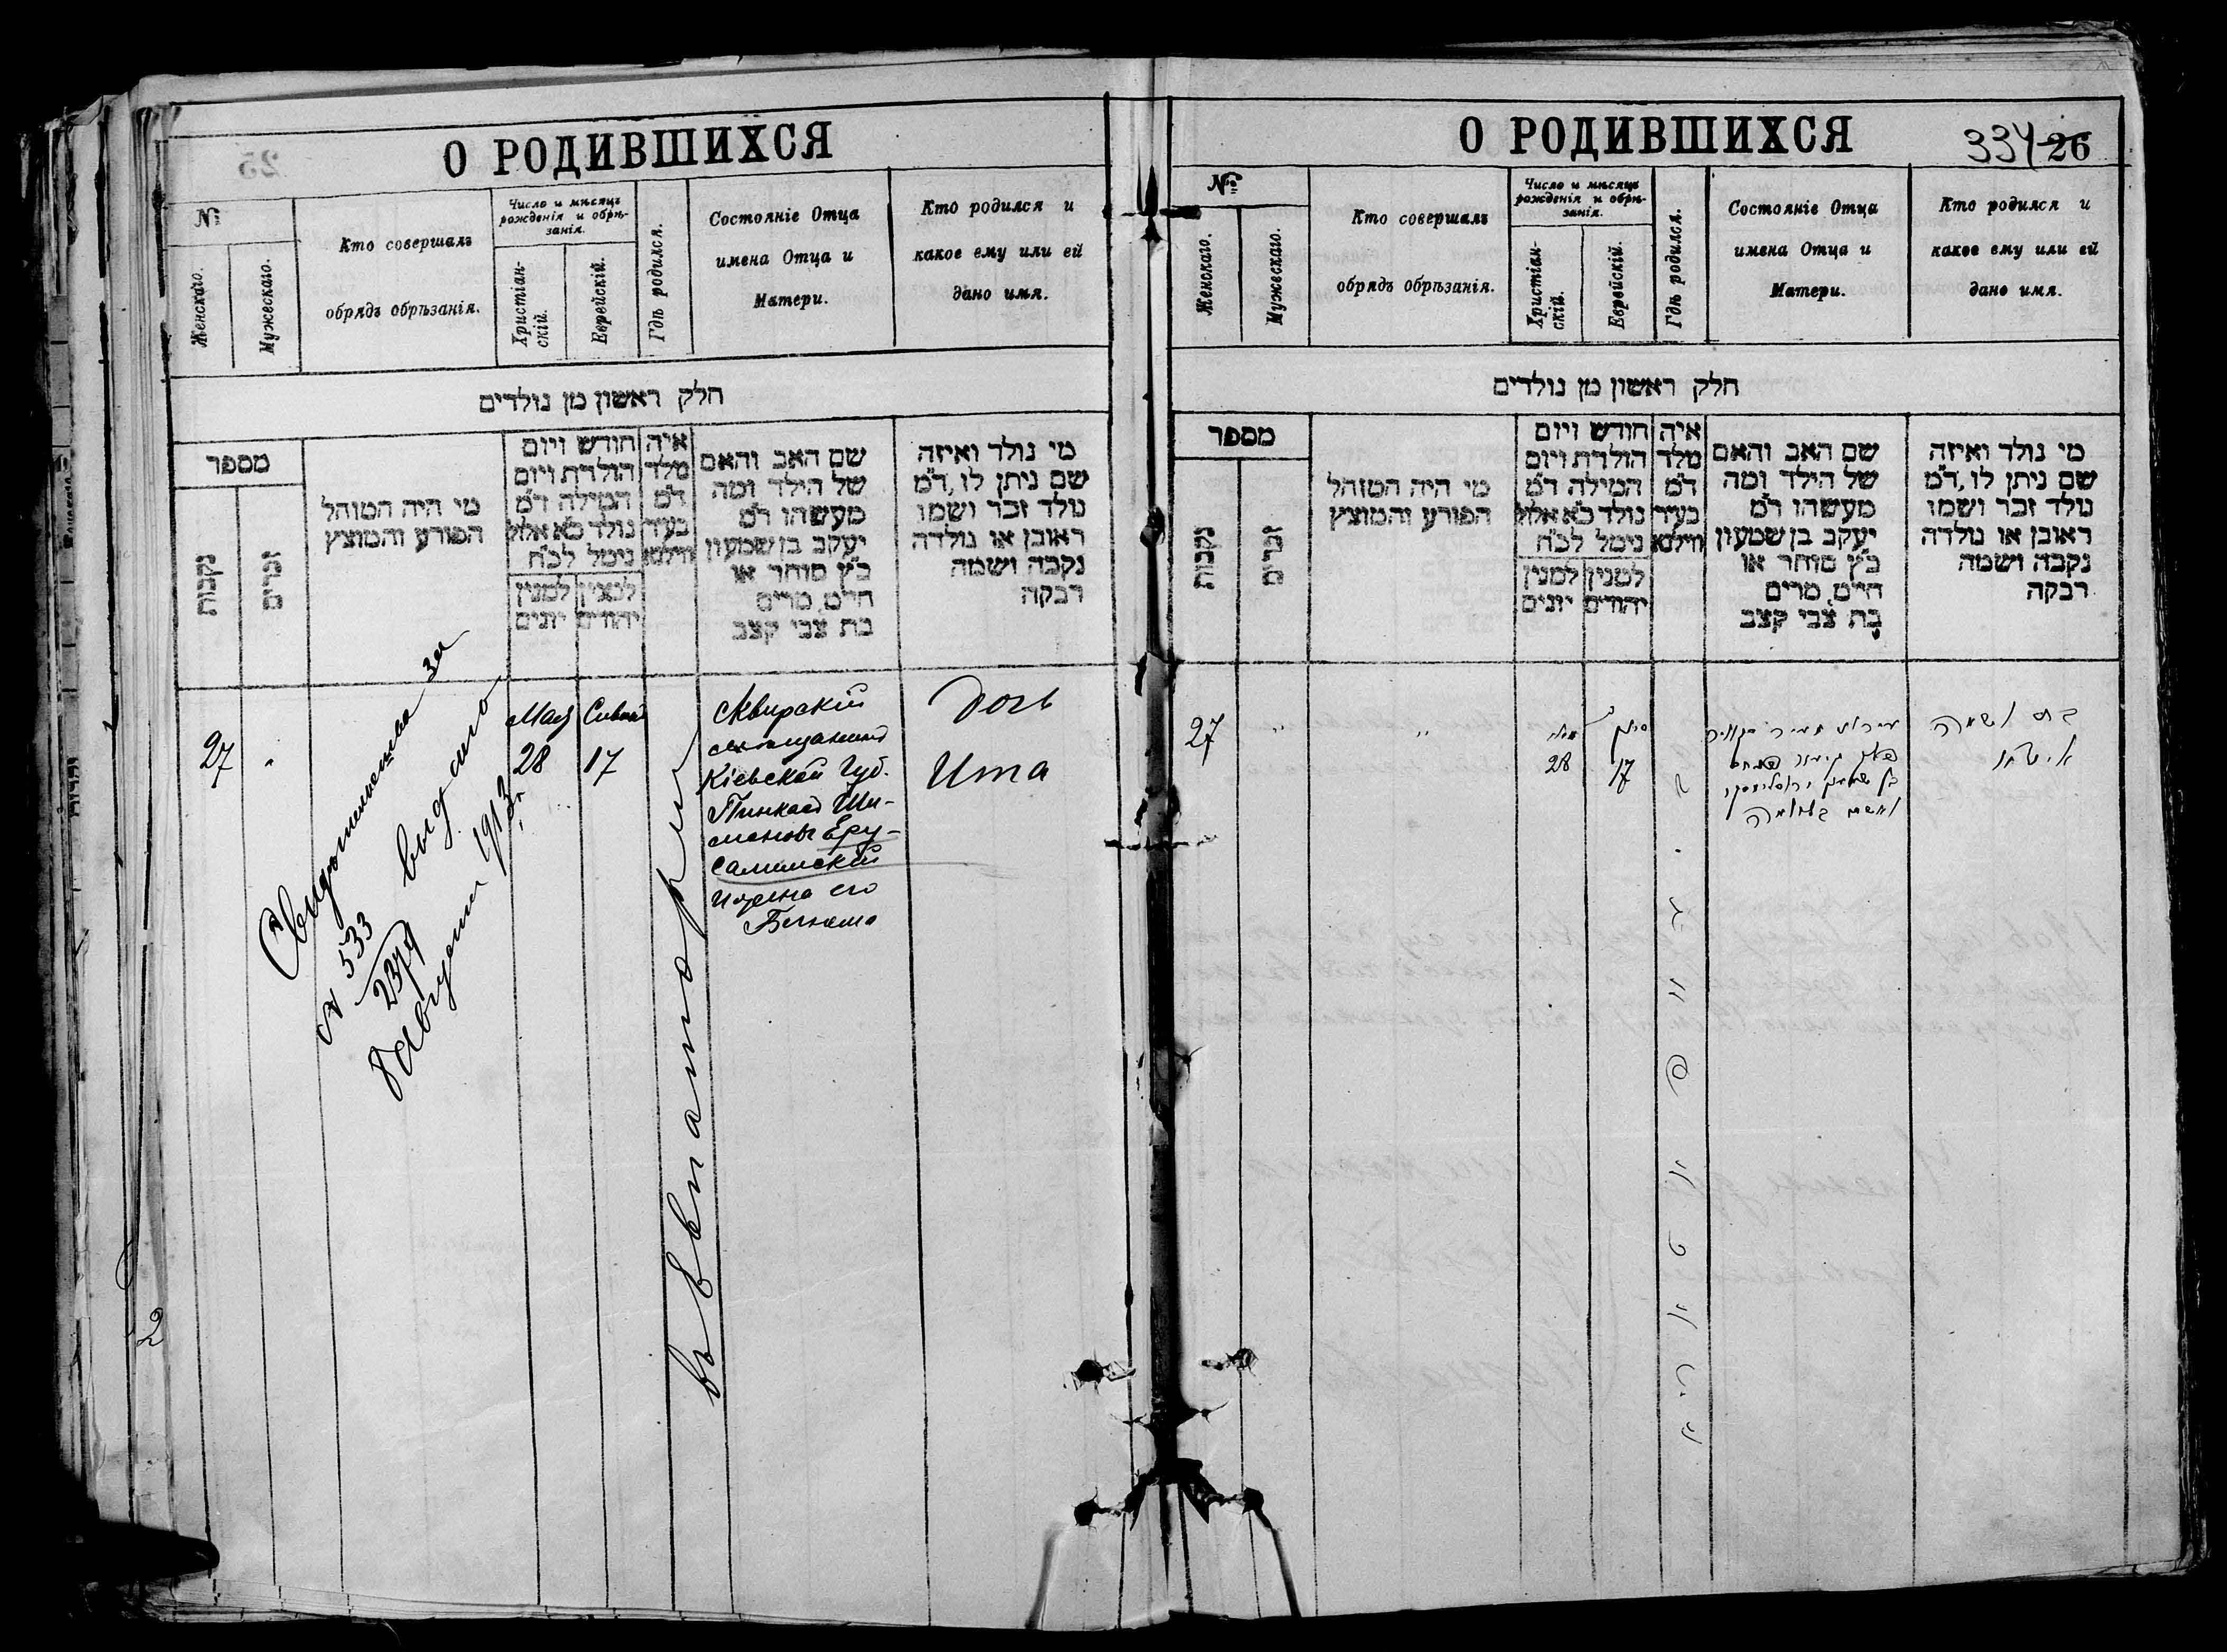 О РОДИВШИХСЯ
№
Женскаго.
Мужескаго.
Кто совершалъ
обрядъ обрѣзанія.
Число и мѣсяцъ
рожденія и обрѣ-
занія.
Христіан-
скій.
Еврейскій.
Гдѣ родился.
Состояніе Отца
имена Отца и
Матери.
Кто родился и
какое ему или ей
дано имя.
חלק ראשון מן נולדים
מספר
נקבות
זכרים
מי היה המוהל
הפורע והמוצץ
חודש ויום
הולדת ויום
המילה ד״מ
נולד כ״א אלול
נימל לכ״ח
למנין למנין
יהודים יונים
איה
מלד
ד״מ
בעיר
ווילנא
שם האב והאם
של הילד ומה
מעשהו ד״מ
יעקב בן שמעון
כ״ץ סוחר או
חי״ט, מרים
בת צבי קצב
מי נולד ואיזה
שם ניתן לו, ד״מ
נולד זכר ושמו
ראובן או נולדה
נקבה ושמה
רבקה
27 "
Свидетельство за
№ 533
2379
выдано
8 августа 1913 г.
Мая
28
Сивана
17
въ Евпаторіи
Сквирскій
мѣщанинъ
Кіевской Губ.
Пинхасъ Ши-
моновъ Еру-
салимскій
жена его
Дочь
Ита
О РОДИВШИХСЯ
334 26
№
Женскаго.
Мужескаго.
Кто совершалъ
обрядъ обрѣзанія.
Число и мѣсяцъ
рожденія и обрѣ-
занія.
Христіан-
скій.
Еврейскій.
Гдѣ родился.
Состояніе Отца
имена Отца и
Матери.
Кто родился и
какое ему или ей
дано имя.
חלק ראשון מן נולדים
מספר
נקבות
זכרים
מי היה המוהל
הפורע והמוצץ
חודש ויום
הולדת ויום
המילה ד״מ
נולד כ״א אלול
נימל לכ״ח
למנין למנין
יהודים יונים
איה
מלד
ד״מ
בעיר
ווילנא
שם האב והאם
של הילד ומה
מעשהו ד״מ
יעקב בן שמעון
כ״ץ סוחר או
חי״ט, מרים
בת צבי קצב
מי נולד ואיזה
שם ניתן לו, ד״מ
נולד זכר ושמו
ראובן או נולדה
נקבה ושמה
רבקה
27 " "
מאי
28
סיון
17
בת ושמה
איטא